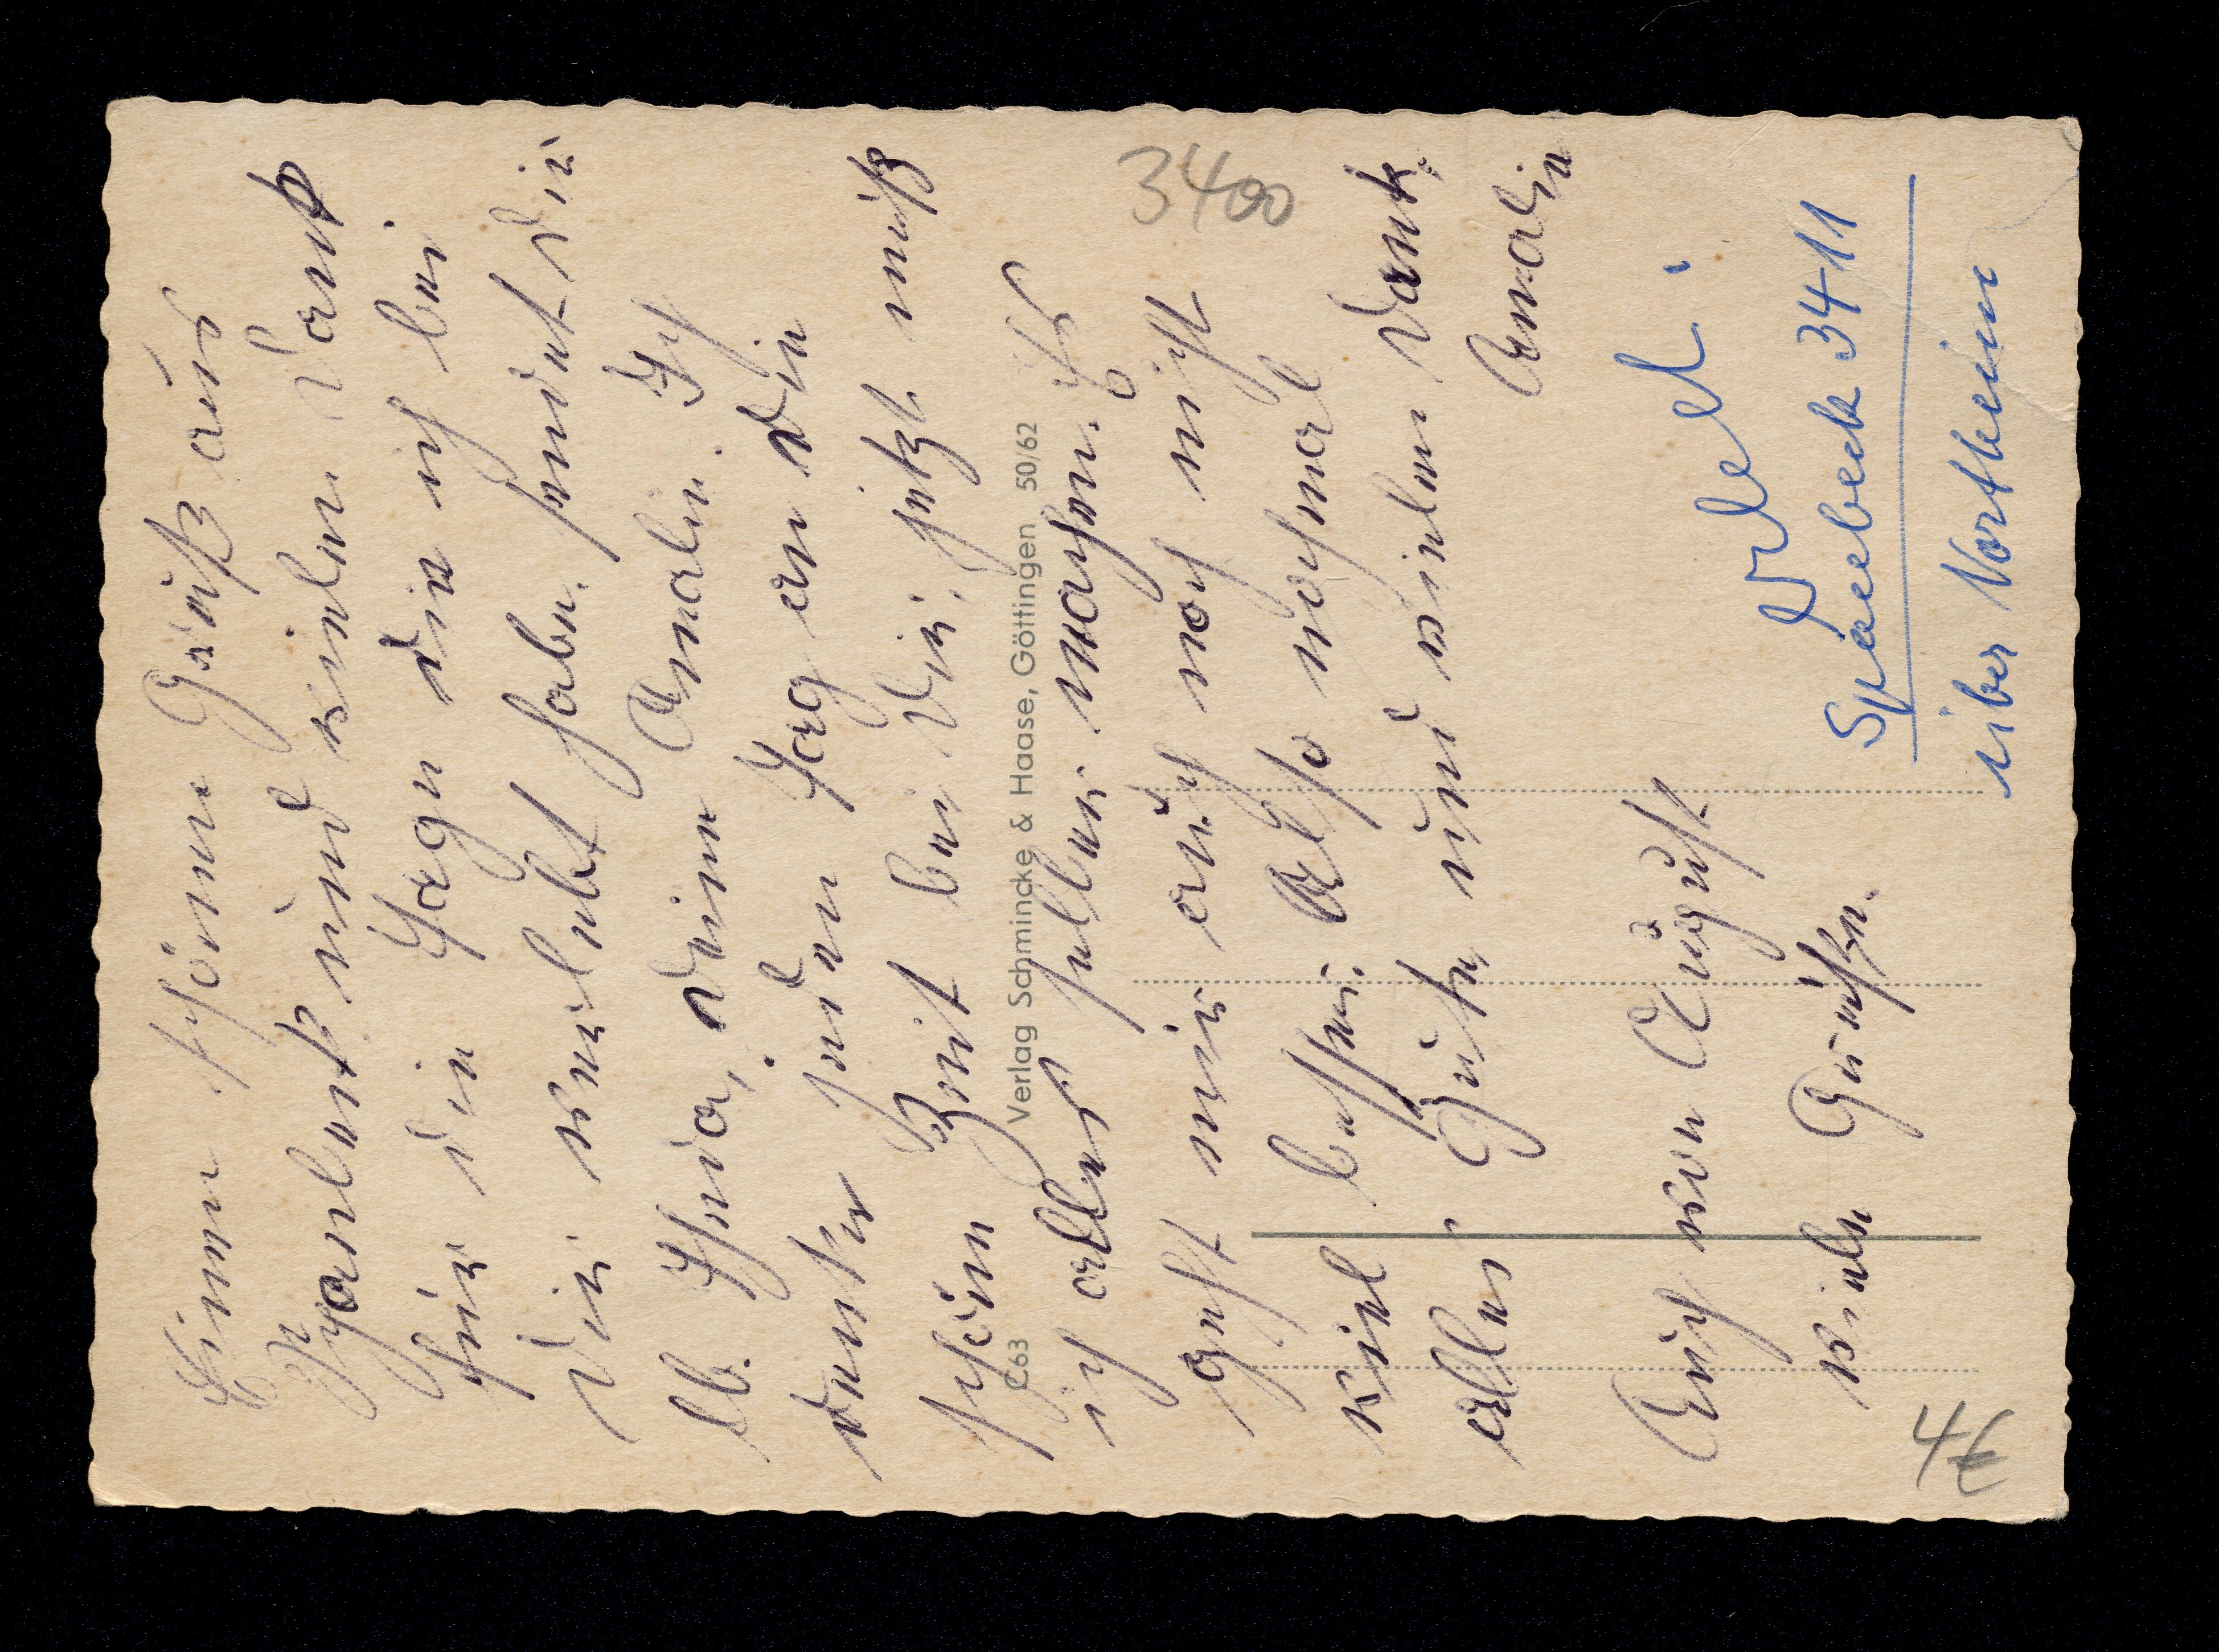 Einen schönen Gruß aus
Spanbeck und vielen Dank
für die Tage die ich bei
Dir verlebt habe. sendet Dir
lb. Theda, Deine Amalie. Ich
denke jeden Tag an Die
schöne Zeit bei Dir, jetzt muß
ich alles selber machen. Es
geht mir auch noch nicht
viel besser. Also nochmal
alles Gute, und vielen Dank.
Amalie
Auch von August
viele Grüße.
Verlag Schmincke & Haase, Göttingen 50/62
C63
3400
Spanbeck 3411
über Northeim
4